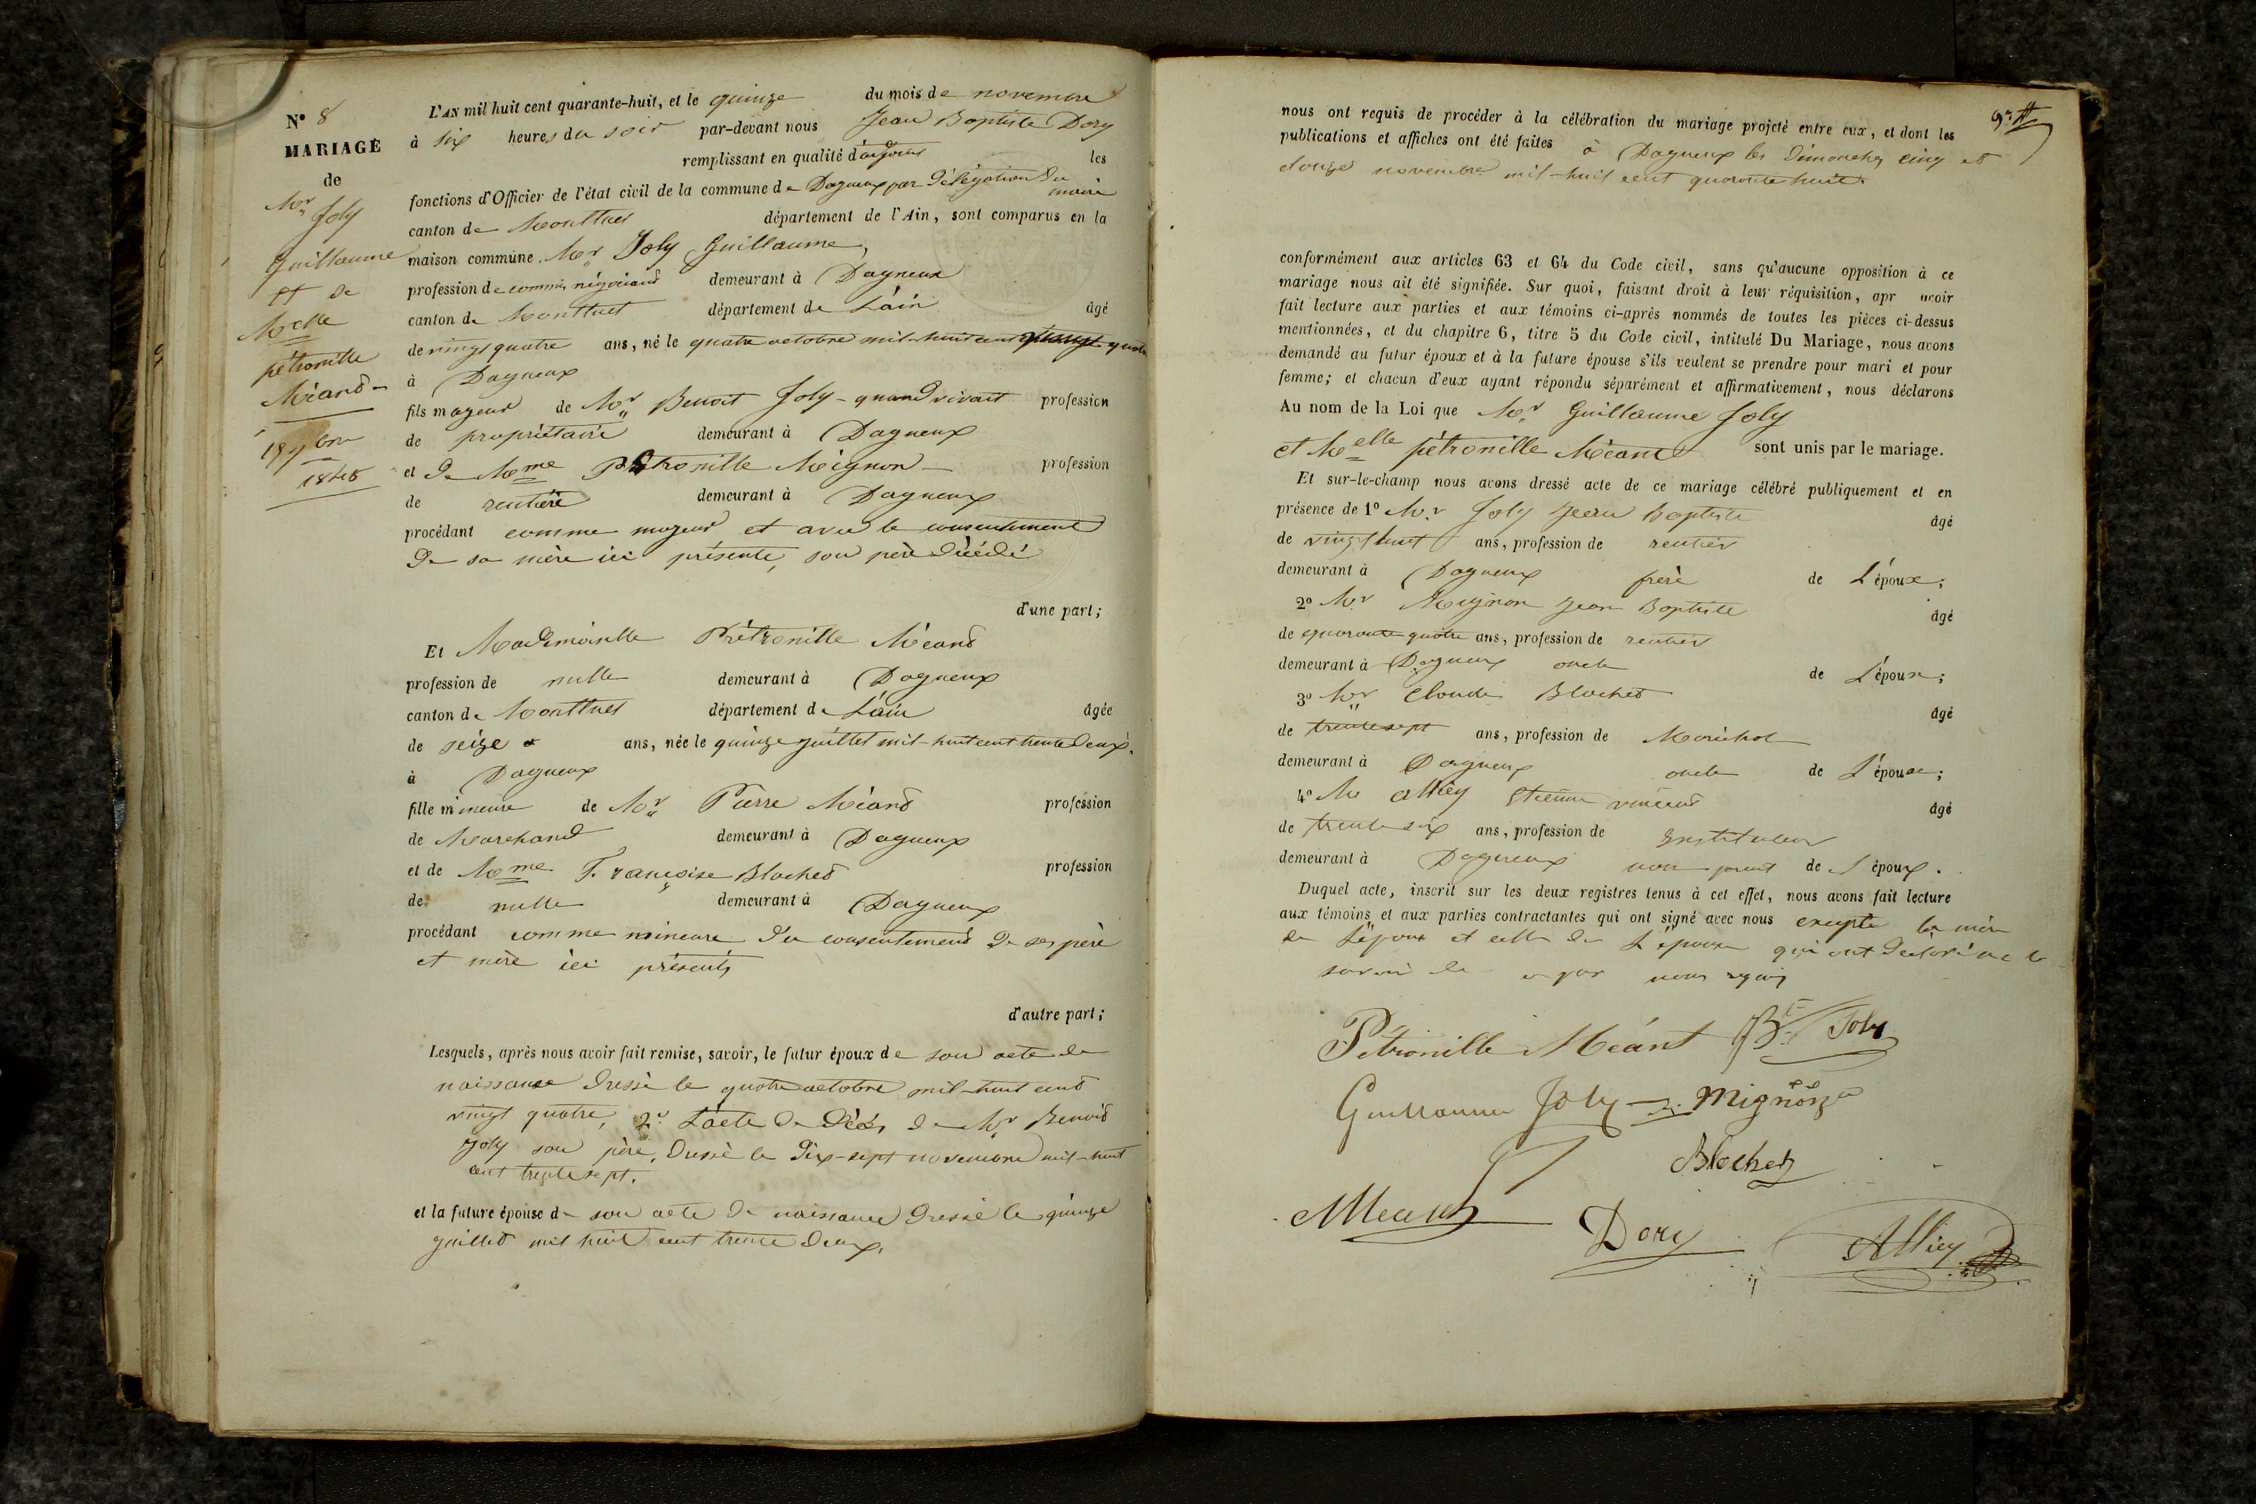 N° 8
MARIAGE
de
Mr Joly
Guillaume
et de
Melle
pétronille
Méant
15 9bre
1848
L'AN mil huit cent quarante-huit, et le quinze du mois de novembre
à six heures du soir par-devant nous Jean Baptiste Dory
remplissant en qualité d'adjoint les
fonctions d'Officier de l'état civil de la commune de Dagneux par délégation du maire
canton de Montluel département de l'Ain, sont comparus en la
maison commune Mr Joly Guillaume,
profession de commis négociant demeurant à Dagneux
canton de Montluel département de L'ain âgé
de vingt quatre ans, né le quatre octobre mil-huit cent
à Dagneux
fils majeur de Mr Benoit Joly - quand vivait profession
de propriétaire demeurant à Dagneux
et de Mme Pétronille Mignon profession
de rentière demeurant à Dagneux
procédant comme majeur et avec le consentement
de sa mère ici présente, son père décédé
d'une part;
Et Mademoiselle Pétronille Méant
profession de nulle demeurant à Dagneux
canton de Montluel département de L'ain âgée
de seize ans, née le quinze juillet mil-huit cent trente deux,
à Dagneux
fille mineure de Mr Pierre Méant profession
de Marchand demeurant à Dagneux
et de Mme Françoise Blochet profession
de nulle demeurant à Dagneux
procédant comme mineure du consentement de ses père
et mère ici présents
d'autre part;
Lesquels, après nous avoir fait remise, savoir, le futur époux de son acte de
naissance dressé le quatre octobre mil-huit cent
vingt quatre, 2° L'acte de décès de Mr Benoit
Joly son père, dressé le dix-sept novembre mil-huit
cent trente sept.
et la future épouse de son acte de naissance dressé le quinze
juillet mil huit cent trente deux.
nous ont requis de procéder à la célébration du mariage projeté entre eux, et dont les
publications et affiches ont été faites à Dagneux les dimanches cinq et
douze novembre mil-huit cent quarante huit.
conformément aux articles 63 et 64 du Code civil, sans qu'aucune opposition à ce
mariage nous ait été signifiée. Sur quoi, faisant droit à leur réquisition, apr avoir
fait lecture aux parties et aux témoins ci-après nommés de toutes les pièces ci-dessus
mentionnées, et du chapitre 6, titre 5 du Code civil, intitulé Du Mariage, nous avons
demandé au futur époux et à la future épouse s'ils veulent se prendre pour mari et pour
femme; et chacun d'eux ayant répondu séparément et affirmativement, nous déclarons
Au nom de la Loi que Mr Guillaume Joly
et Melle pétronille Méant sont unis par le mariage.
Et sur-le-champ nous avons dressé acte de ce mariage célébré publiquement et en
présence de 1° Mr Joly Jean Baptiste âgé
de vingt huit ans, profession de rentier
demeurant à Dagneux frère de L'époux;
2° Mr Mignon Jean Baptiste âgé
de quarante quatre ans, profession de rentier
demeurant à Dagneux oncle de L'époux;
3° Mr Claude Blochet âgé
de trente sept ans, profession de Maréchal
demeurant à Dagneux oncle de L'épouse;
4° Mr Alliey Etienne vincent âgé
de trente six ans, profession de Instituteur
demeurant à Dagneux non parent de L'époux.
Duquel acte, inscrit sur les deux registres tenus à cet effet, nous avons fait lecture
aux témoins et aux parties contractantes qui ont signé avec nous excepté la mère
de L'époux et celle de L'épouse qui ont déclaré ne le
savoir de par nous requis
Pétronille Méant Bte Joly
Guillaume Joly Mignon
Blochet
Meant
Dory
Alliey